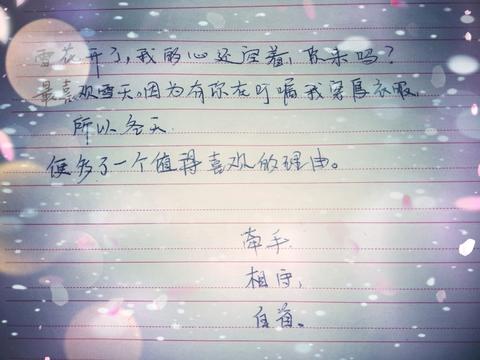 雪花开了,我的心还空着,你来吗?
最喜欢雪天。因为有你在叮嘱我穿厚衣服
所以冬天
便多了一个值得喜欢的理由。
牵手
相守,
白首。